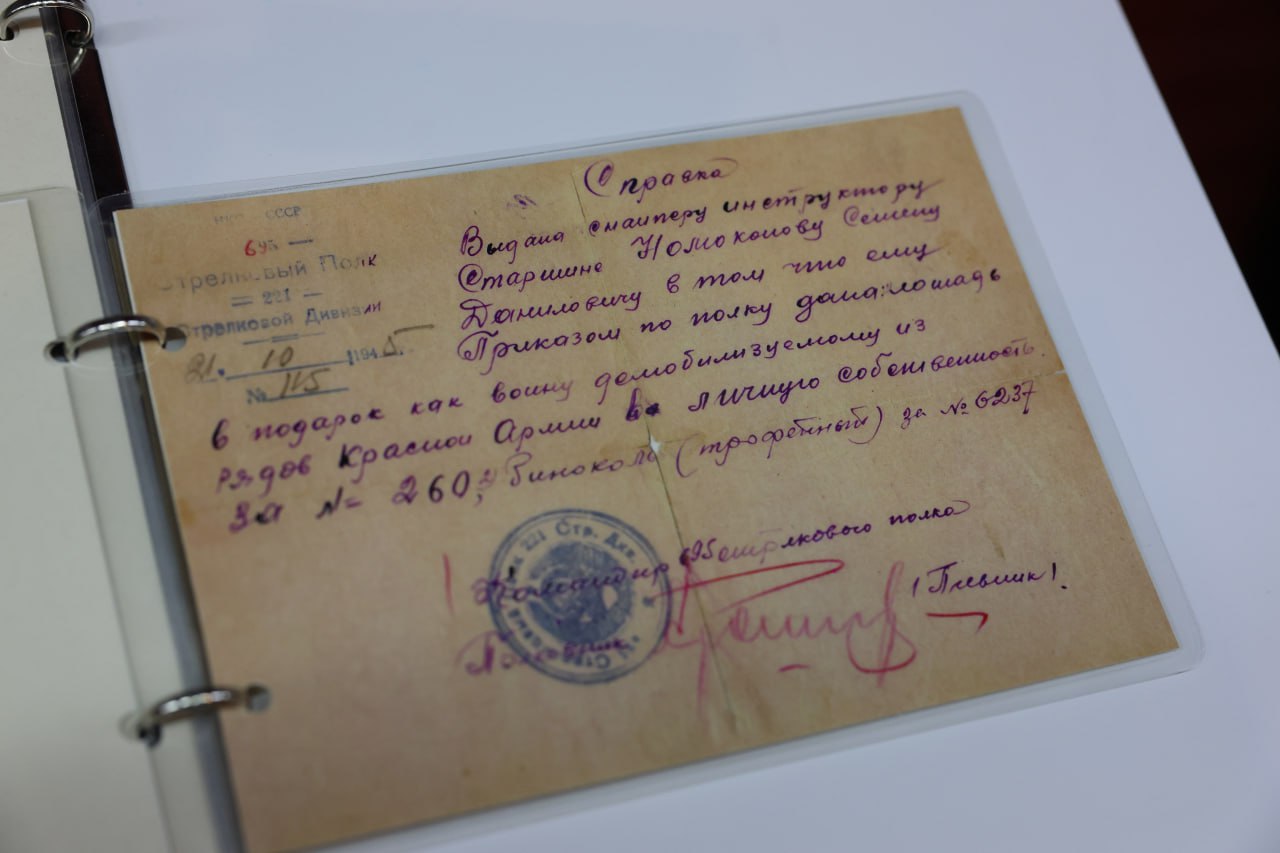 Справка
НКО СССР
695 —
Стрелковый Полк
— 221 —
Стрелковой Дивизии
21. 10 1945
№ 115
Выдана снайперу инструктору
Старшине Номоконову Семену
Даниловичу в том что ему
Приказом по полку дана: лошадь
в подарок как воину демобилизуемому из
рядов Красной Армии в личную собственность.
За № 260; Бинокль (трофейный) за № 6237
Командир 695 стрелкового полка
Полковник
/ Пивник /.
221 Стр. Див.